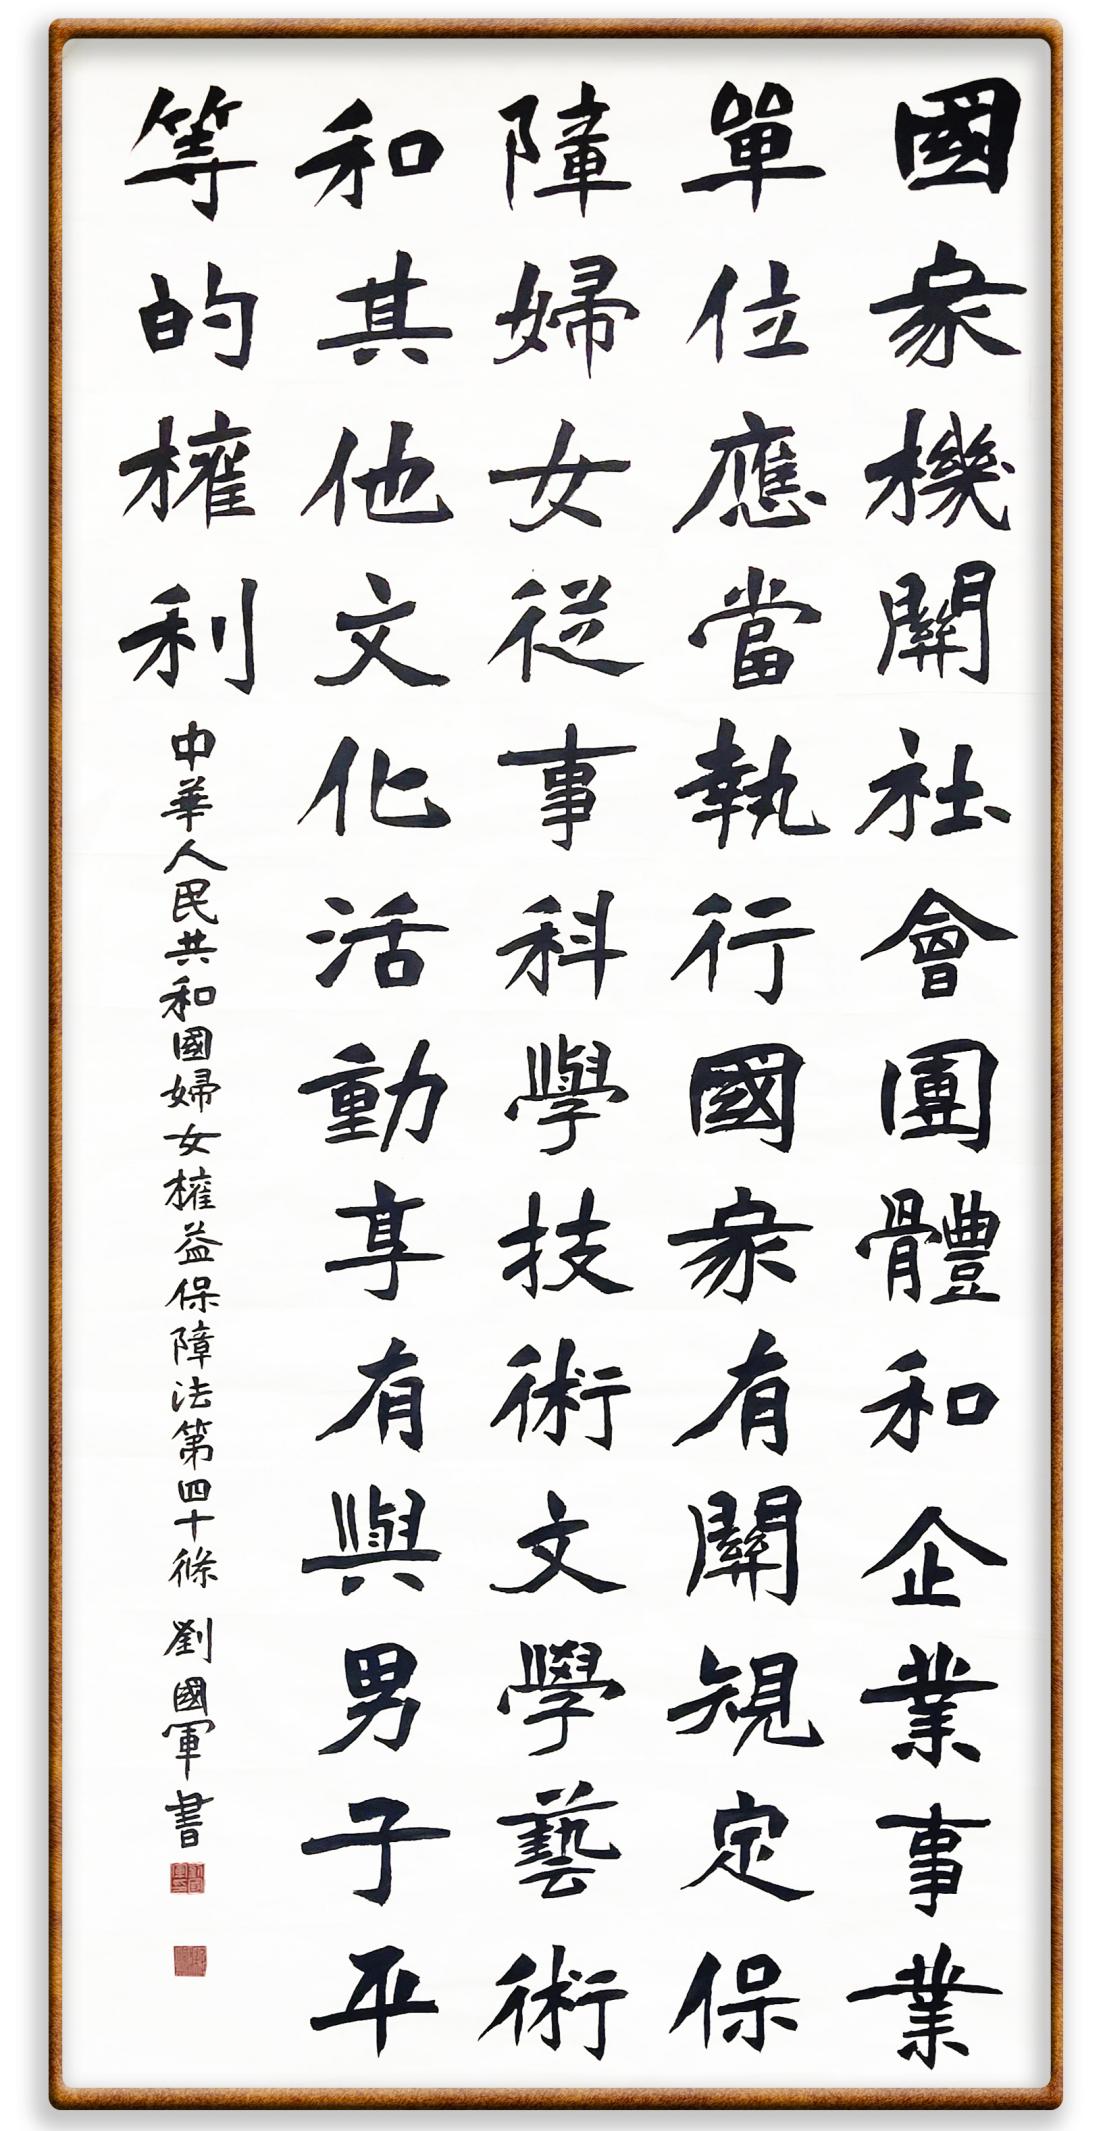 國家機關社會團體和企業事業
單位應當執行國家有關規定保
障婦女從事科學技術文學藝術
和其他文化活動享有與男子平
等的權利
中華人民共和國婦女權益保障法第四十條 劉國軍書